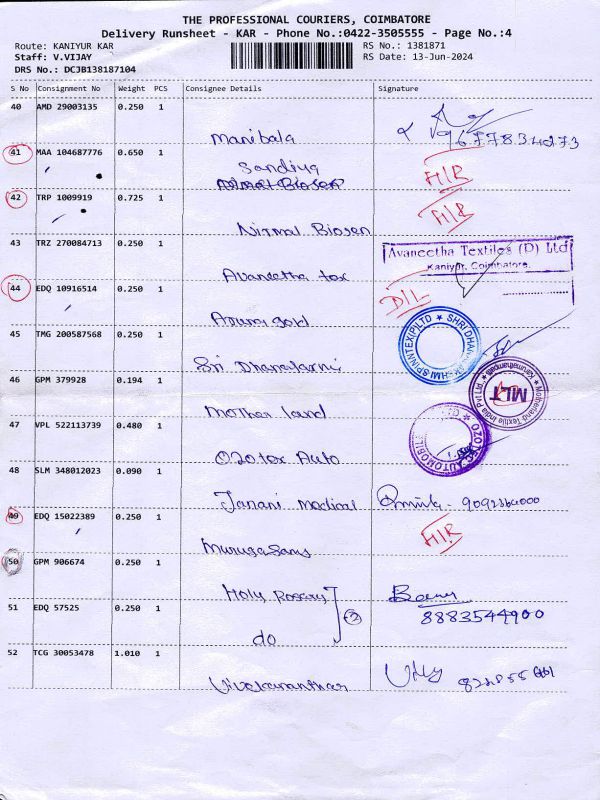 THE PROFESSIONAL COURIERS, COIMBATORE
Delivery Runsheet - KAR - Phone No.:0422-3505555 - Page No.:4
Route: KANIYUR KAR
RS No.: 1381871
Staff: V.VIJAY
RS Date: 13-Jun-2024
DRS No.: DCJB138187104
S No Consignment No Weight PCS Consignee Details Signature
40 AMD 29003135 0.250 1
Manibala 9677834273
41 MAA 104687776 0.650 1
Sandiya H/R
42 TRP 1009919 0.725 1
H/R
Nirmal Biosen
43 TRZ 270084713 0.250 1
Avaneetha Textiles (P) Ltd
Kaniyur, Coimbatore.
Avaneetha tex
44 EDQ 10916514 0.250 1
D/L
Arunagold
45 TMG 200587568 0.250 1
Sri Dhanalaxmi
46 GPM 379928 0.194 1
MLT
Mother land
47 VPL 522113739 0.480 1
Ozotex Auto
48 SLM 348012023 0.090 1
Janani Medical
49 EDQ 15022389 0.250 1
H/R
Murugasans
50 GPM 906674 0.250 1
Holy Rosary
51 EDQ 57525 0.250 1
8883544900
do
52 TCG 30053478 1.010 1